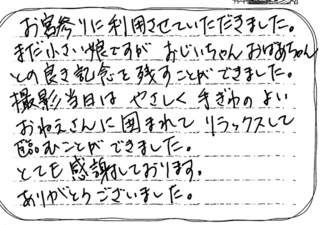 お宮参りに利用させていただきました。
まだ小さい娘ですが おじいちゃん おばあちゃん
との良き記念を残すことができました。
撮影当日は やさしく 手ぎわの よい
おねえさんに 囲まれて リラックスして
臨むことが できました。
とても 感謝しております。
ありがとうございました。